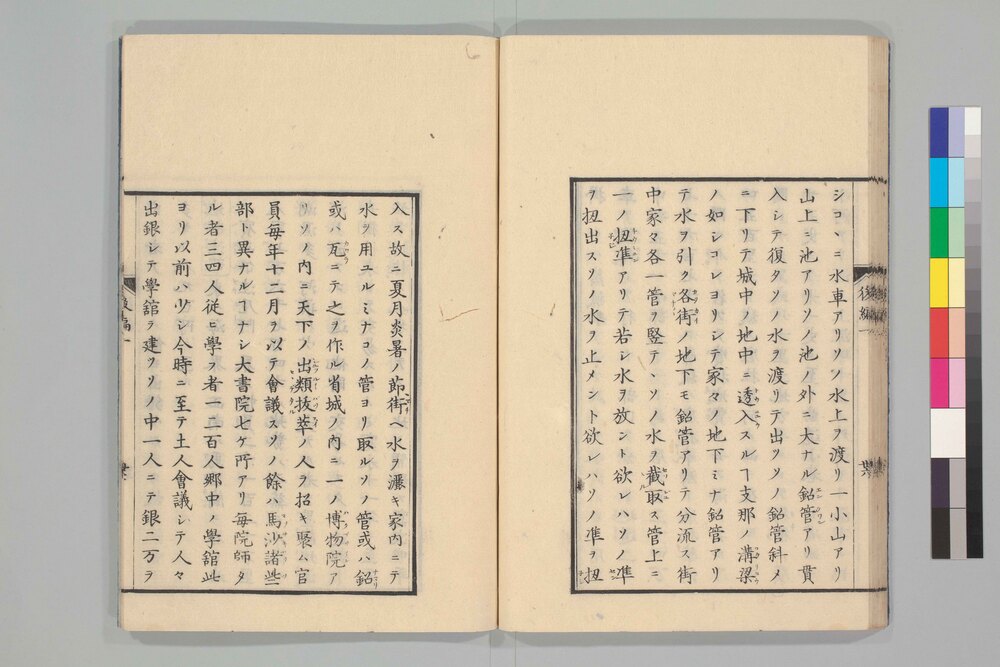 シコヽニ水車アリソノ水上ヲ渡リ一小山アリ
山上ニ池アリソノ池ノ外ニ大ナル鉛管アリ貫
入シテ復タソノ水ヲ渡リテ出ツソノ鉛管斜メ
ニ下リテ城中ノ地中ニ透入スルヿ支那ノ溝梁
ノ如シコレヨリシテ家々ノ地下ミナ鉛管アリ
テ水ヲ引ク各街ノ地下モ鉛管アリテ分流ス街
中家々各一管ヲ竪テヽソノ水ヲ截取ス管上ニ
一ノ扭準アリテ若シ水ヲ放ント欲レハソノ準
ヲ扭出スソノ水ヲ止メント欲レハソノ準ヲ扭
後編一
入ス故ニ夏月炎暑ノ節街ヘ水ヲ灑キ家内ニテ
水ヲ用ユルミナコノ管ヨリ取ルソノ管或ハ鉛
或ハ瓦ニテ之ヲ作ル省城ノ内ニ一ノ博物院ア
リソノ内ニ天下ノ出類抜萃ノ人ヲ招キ聚ム官
員毎年十二月ヲ以テ會議スソノ餘ハ馬沙諸些
部ト異ナルヿナシ大書院七ケ所アリ毎院師タ
ル者三四人従ヒ學フ者一二百人郷中ノ學舘此
ヨリ以前ハ少シ今時ニ至テ土人會議シテ人々
出銀シテ學舘ヲ建ツソノ中一人ニテ銀二万ヲ
後編一